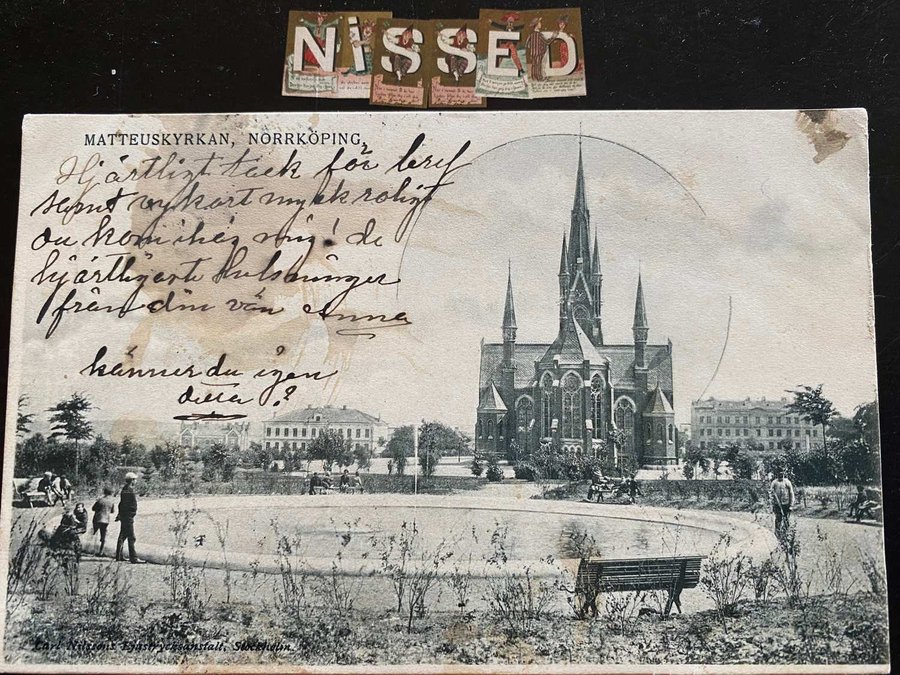 NiSSED
MATTEUSKYRKAN, NORRKÖPING.
Hjärtligt tack för bref
samt vykort myck roligt
du kom ihåg mig! de
hjärtligaste hälsninger
från din vän Anna
känner du igen
detta?
Carl Nilssons Ljustrycksanstalt, Stockholm.